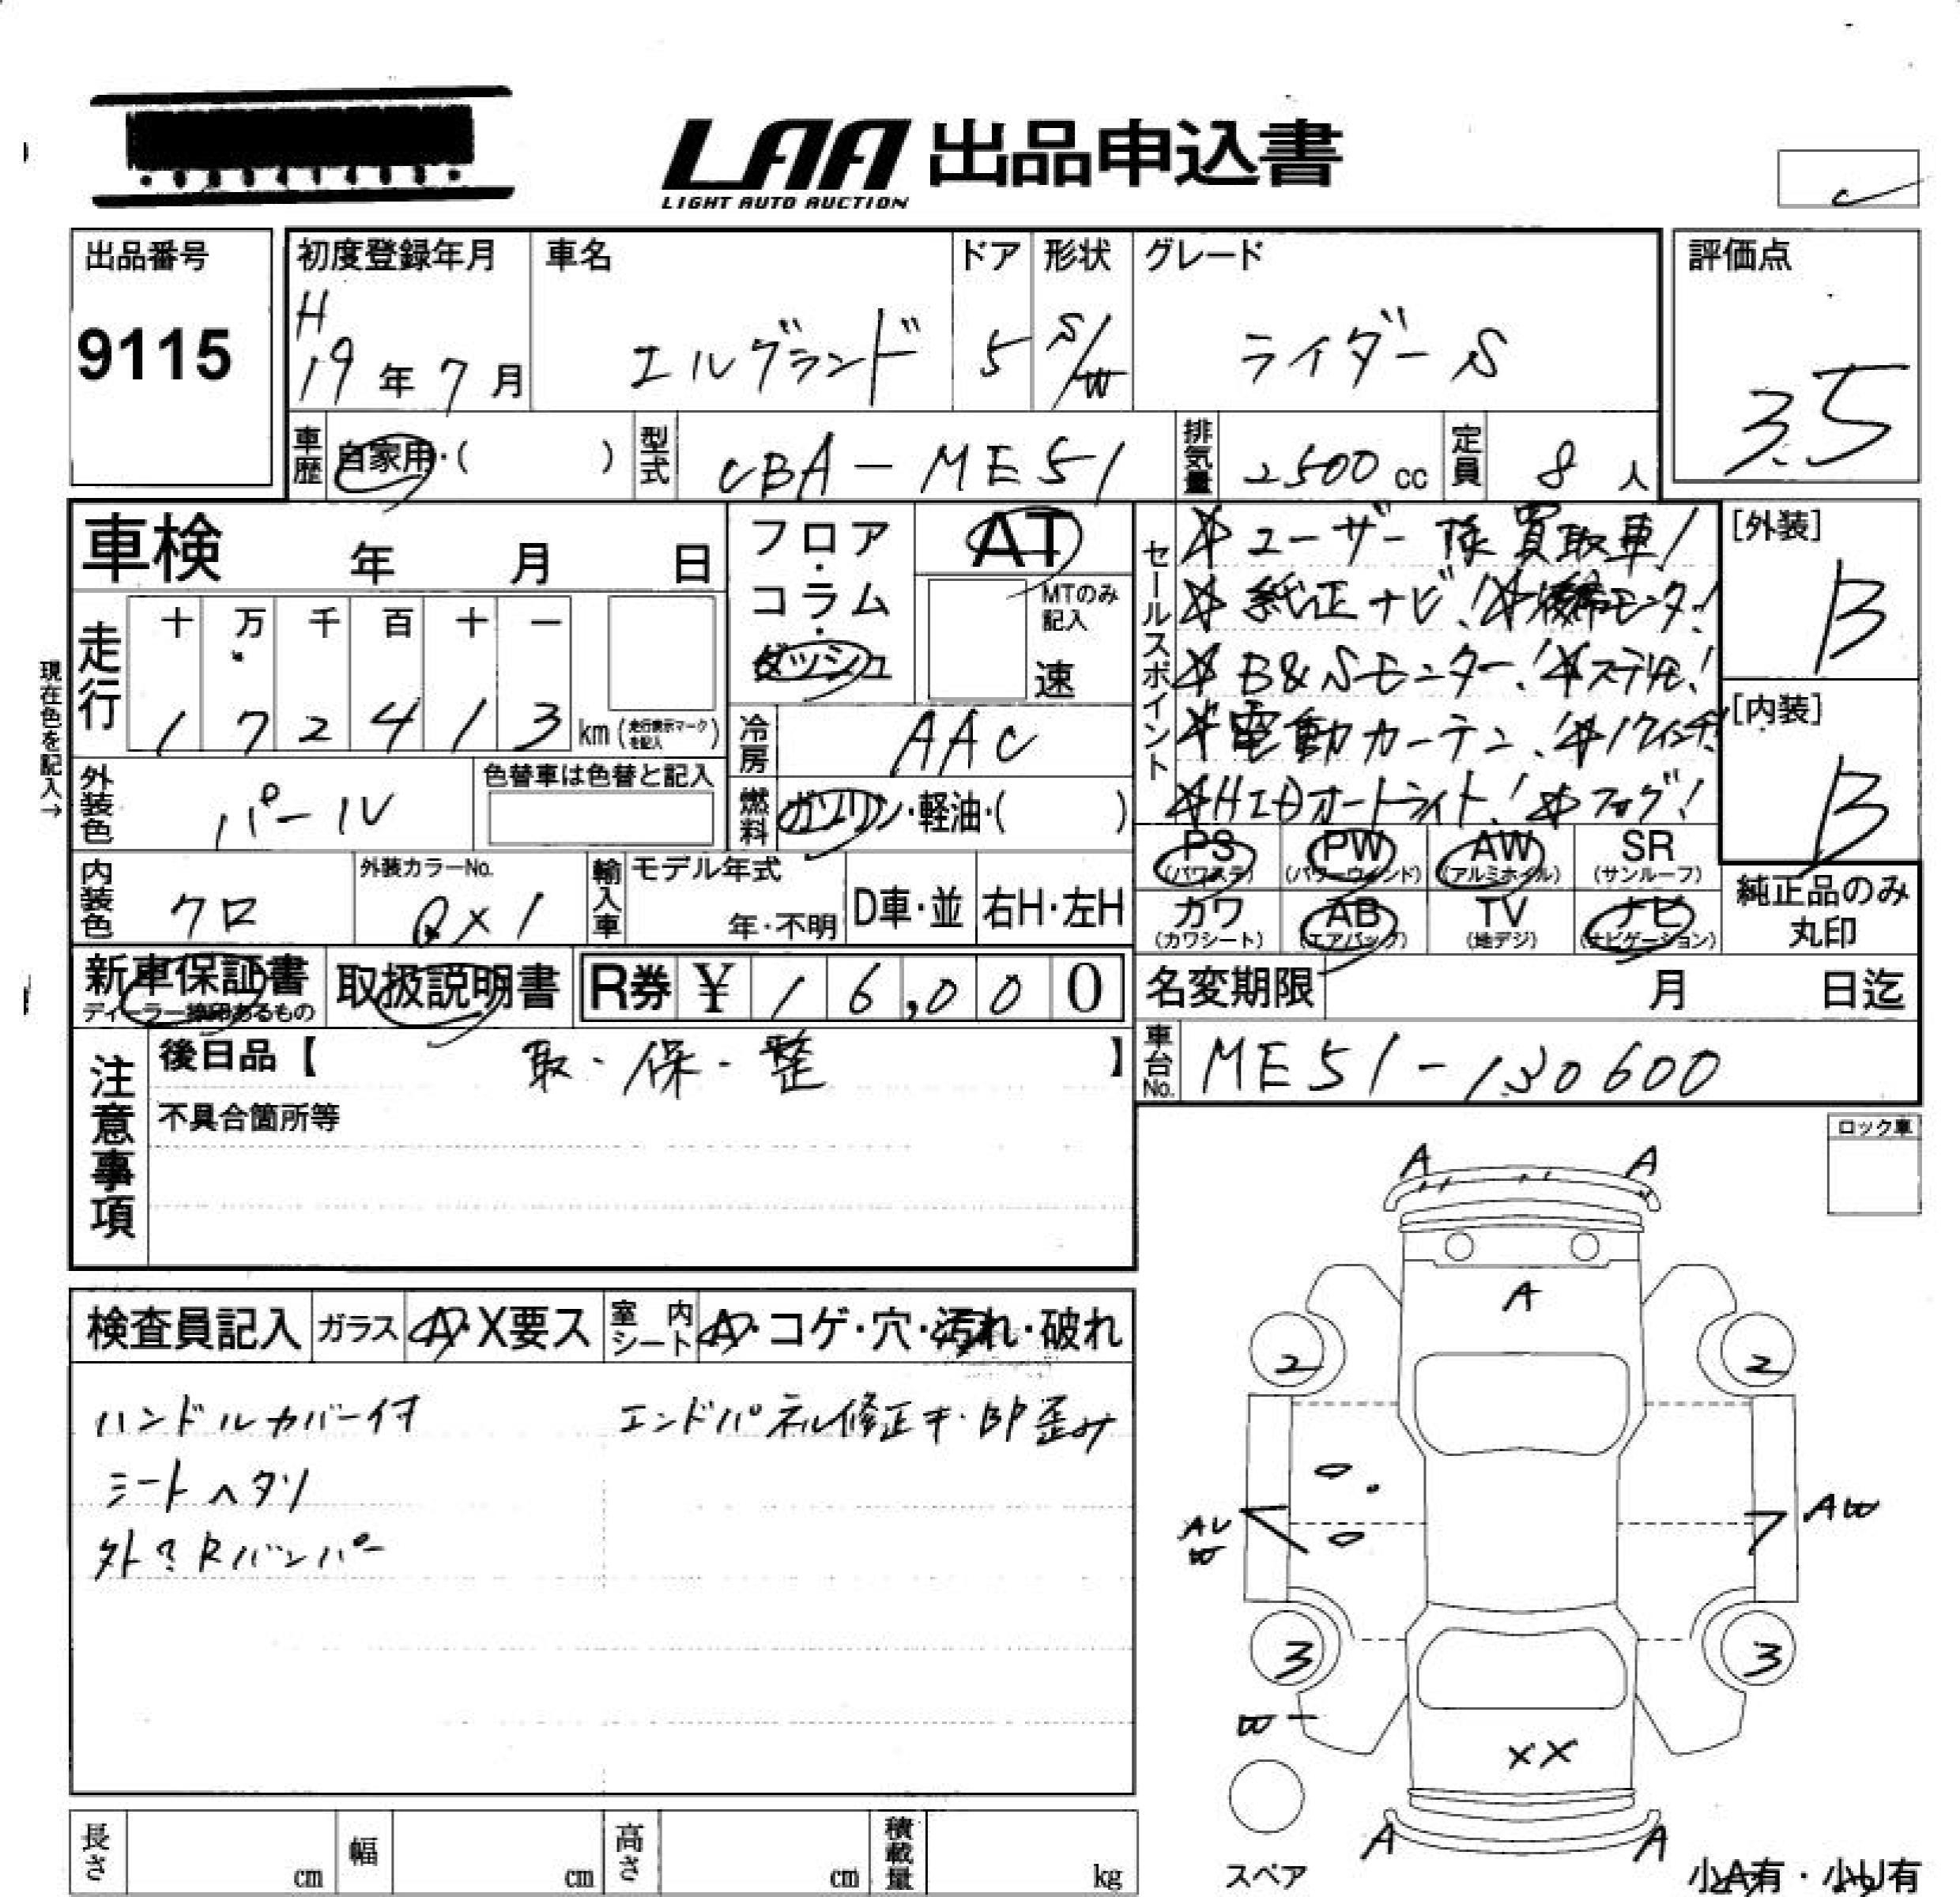 LAA 出品申込書
LIGHT AUTO AUCTION
出品番号
9115
初度登録年月
H
19年7月
車名
エルグランド
ドア
5
形状
S/W
グレード
ライダーS
評価点
3.5
車歴 自家用・( )
型式 CBA-ME51
排気量 2500cc
定員 8人
車検 年 月 日
フロア・コラム・ダッシュ
AT
MTのみ記入
速
セールスポイント
☆ユーザー様買取車!
☆純正ナビ!☆後席モニタ!
☆B&Sモニター!☆ステリモ!
☆電動カーテン!☆17インチ!
☆HIDオートライト!☆フォグ!
[外装]
B
[内装]
B
現在色を記入→
走行 十 万 千 百 十 一
1 7 2 4 1 3 km (走行表示マークを記入)
冷房 AAC
外装色 パール
色替車は色替と記入
燃料 ガソリン・軽油・( )
PS (パワステ)
PW (パワーウィンド)
AW (アルミホイル)
SR (サンルーフ)
カワ (カワシート)
AB (エアバッグ)
TV (地デジ)
ナビ (ナビゲーション)
純正品のみ
丸印
内装色 クロ
外装カラーNo.
QX1
輸入車 モデル年式
年・不明
D車・並
右H・左H
新車保証書
ディーラー捺印あるもの
取扱説明書
R券 ¥ 1 6,0 0 0
名変期限 月 日迄
車台No. ME51-130600
注意事項
後日品【 取・保・整 】
不具合箇所等
ロック車
検査員記入
ガラス A・X要ス
室内シート A・コゲ・穴・汚れ・破れ
ハンドルカバー付
シートヘタリ
外?Rバンパー
エンドパネル修正キ・BP歪み
A A
A
2 2
AU
W
AW
3 3
W
XX
A A
スペア
小A有・小U有
長さ cm
幅 cm
高さ cm
積載量 kg